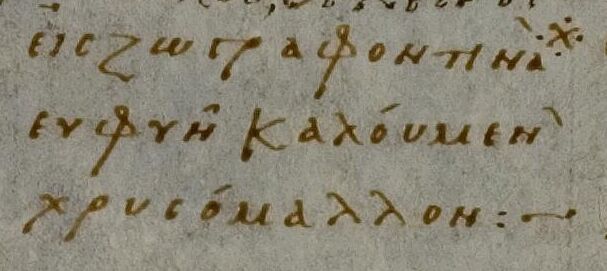 εἰς ζωγραφον τινὰ ※
ευφυῆ καλόυμεν`
χρυσόμαλλον :—